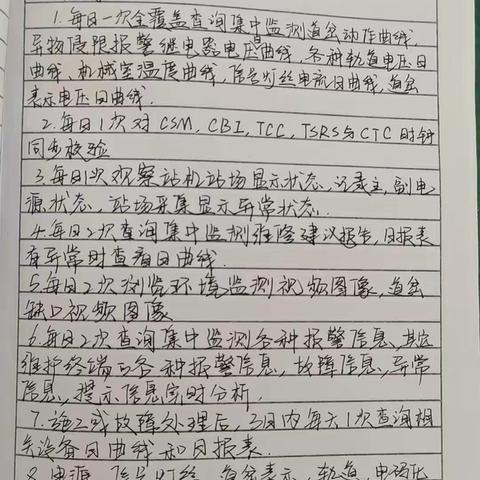 1.每日一次全覆盖查询集中监测道岔动作曲线,
异物侵限报警继电器电压日曲线,各种轨道电压日
曲线,机械室温度曲线,信号灯丝电流日曲线,道岔
表示电压日曲线.
2.每日1次对CSM,CBI,TCC,TSRS与CTC时钟
同步校验
3.每日1次观察站机站场显示状态,记录主,副电
源状态,站场采集显示异常状态.
4.每日2次查询集中监测维修建议报告,日报表
有异常时查看日曲线.
5.每日2次浏览环境监测视频图像,道岔
缺口视频图像
6.每日2次查询集中监测各种报警信息、其它
维护终端各种报警信息,故障信息,异常
信息,提示信息实时分析.
7.施工或故障处理后,3日内每天1次查询相
关设备日曲线和日报表.
8.电源,信号灯丝,道岔表示,轨道,电码化